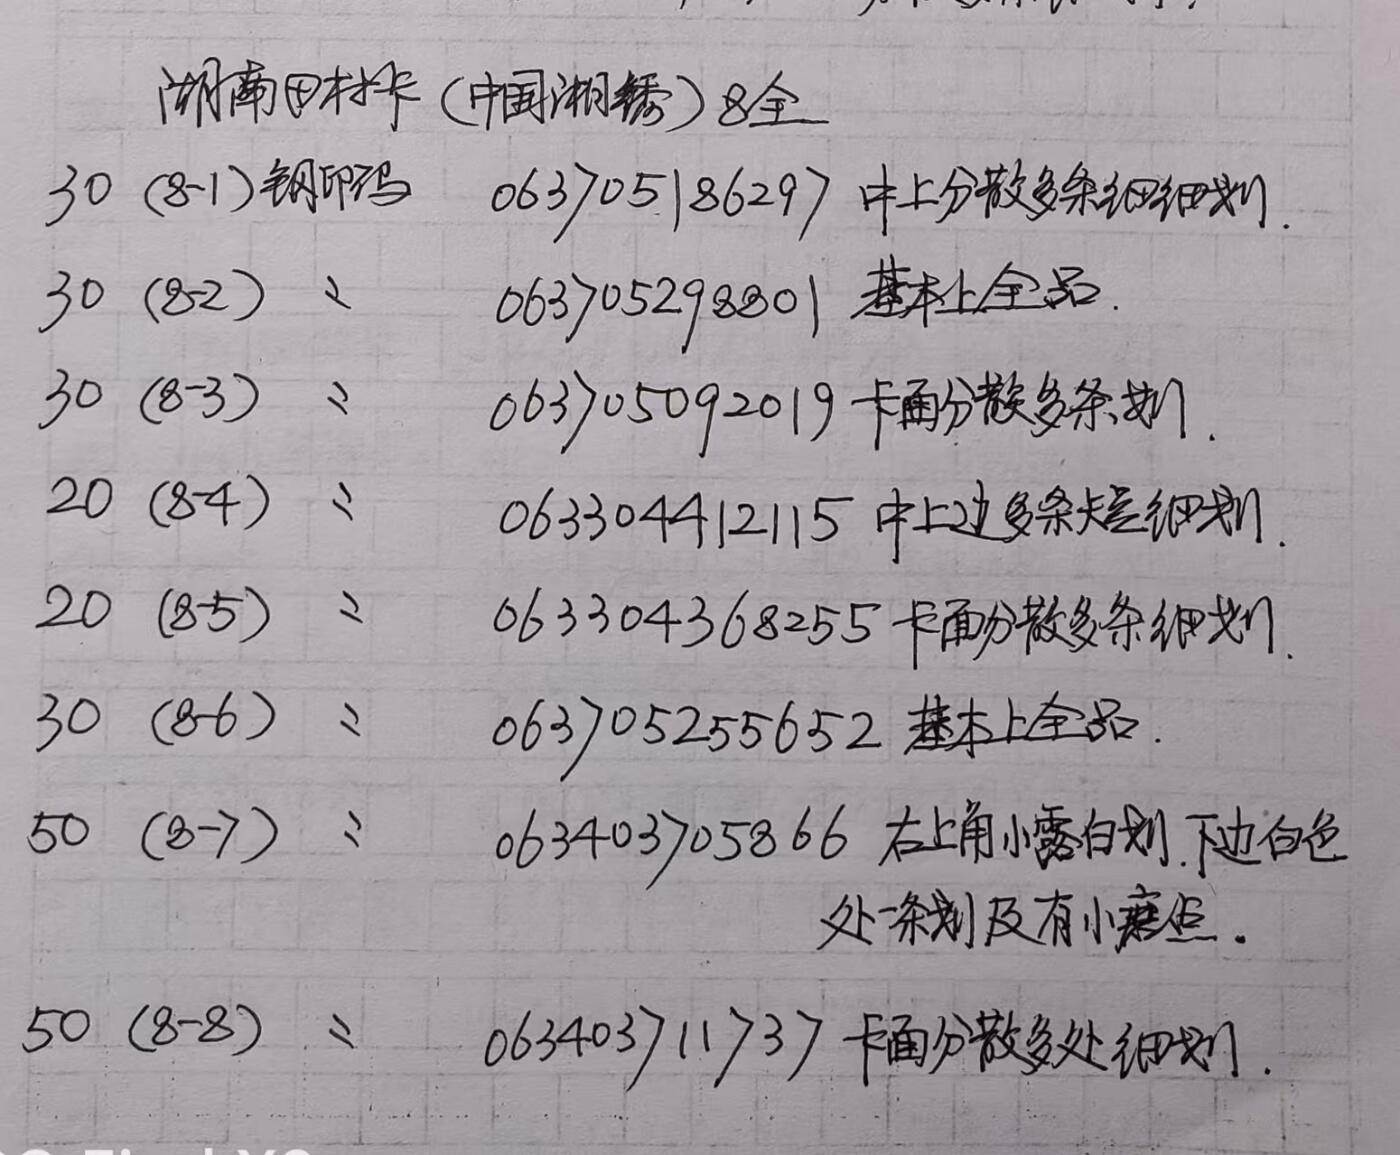 湖南田村卡(中国湘绣)8全
30 (8-1)钢印码 063705186297 中上分散多条细细划.
30 (8-2) 〃 063705298801 基本上全品.
30 (8-3) 〃 063705092019 卡面分散多条划.
20 (8-4) 〃 063304412115 中上边多条短细划.
20 (8-5) 〃 063304368255 卡面分散多条细划.
30 (8-6) 〃 063705255652 基本上全品.
50 (8-7) 〃 063403705866 右上角小露白划.下边白色
处一条划及有小磨点.
50 (8-8) 〃 063403711737 卡面分散多处细划.